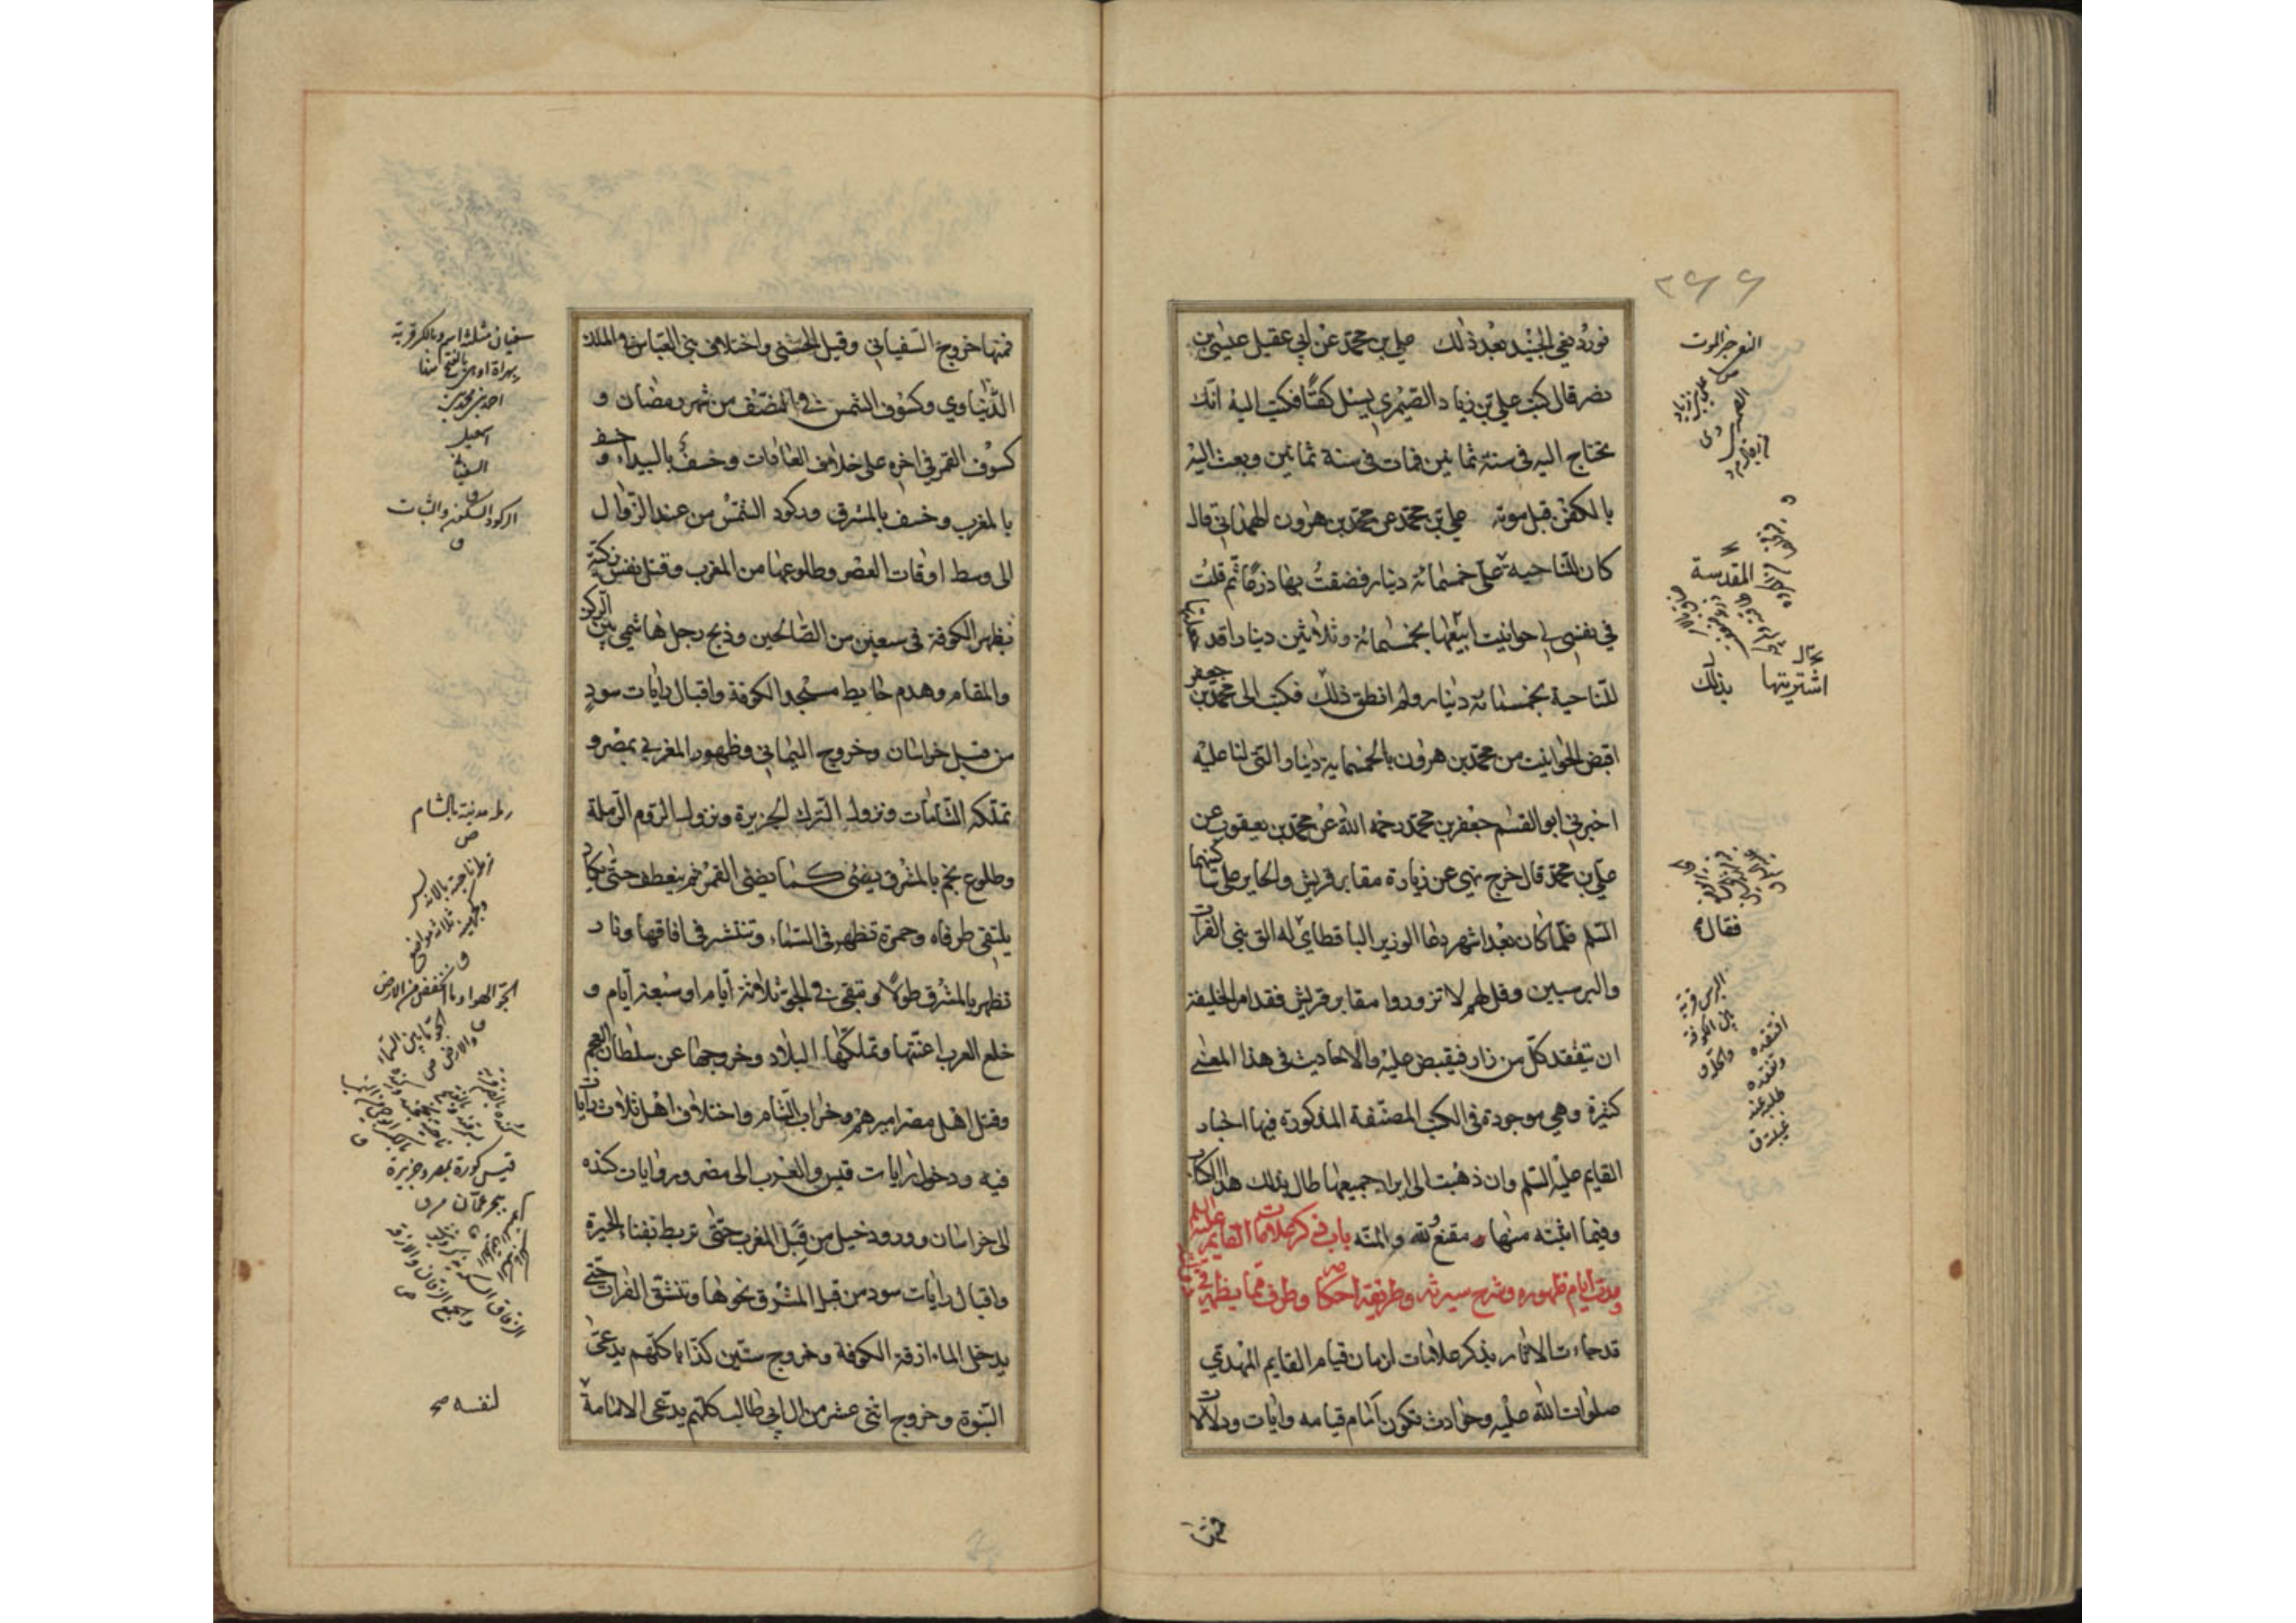 فورد نعي الجنيد بعد ذلك علي بن محمد عن ابي عقيل عيسى بن
نصر قال كتب علي بن زياد الصيمري يسئل كفنا فكتب اليه انك
تحتاج اليه في سنة ثمانين فمات في سنة ثمانين وبعث اليه
بالكفن قبل موته علي بن محمد عن محمد بن هرون الهمداني قال
كان للناحية علي خمسمائة دينار فضقت بها ذرعا ثم قلت
في نفسي لي حوانيت ابيعها بخمسمائة وثلاثين دينارا قد جعلتها
للناحية بخمسمائة دينار ولم انطق ذلك فكتب الى محمد بن جعفر
اقبض الحوانيت من محمد بن هرون بالخمسماية دينار التي لنا عليه
اخبرني ابو القسم جعفر بن محمد رحمه الله عن محمد بن يعقوب عن
علي بن محمد قال خرج نهي عن زيارة مقابر قريش والحاير على ساكنيهما
السلم فلما كان بعد اشهر دعا الوزير الباقطاي له الق بني الفرات
والبرسيين وقل لهم لا تزوروا مقابر قريش فقد امر الخليفة
ان يتفقد كل من زار فيقبض عليه والاحاديث في هذا المعنى
كثيرة وهي موجودة في الكتب المصنفة المذكورة فيها اخبار
القايم عليه السلم وان ذهبت الى ايراد جميعها طال بذلك هذا الكتاب
وفيما اثبته منها مقنع ولله والمنه باب في ذكر علامات القايم عليه السلم
ومدة ايام ظهوره وشرح سيرته وطريقة احكامه وطرف مما يظهر في
قد جاءت الاثار بذكر علامات لزمان قيام القايم المهدي
صلوات الله عليه وحوادث تكون امام قيامه وايات ودلالات
فمنها
النعي خبر الموت
المقدسة
اشتريتها بذلك
فقال
البرس قرية
بين الكوفة
والحلة ق
افتقده
وتفقده
طلبه عند
غيبته ق
فمنها خروج السفياني وقتل الحسني واختلاف بني العباس في الملك
الدنياوي وكسوف الشمس في النصف من شهر رمضان و
كسوف القمر في اخره على خلاف العادات وخسف بالبيداء وخسف
بالمغرب وخسف بالمشرق وركود الشمس من عند الزوال
الى وسط اوقات العصر وطلوعها من المغرب وقتل نفس زكية
بظهر الكوفة في سبعين من الصالحين وذبح رجل هاشمي بين الركن
والمقام وهدم حايط مسجد الكوفة واقبال رايات سود
من قبل خراسان وخروج اليماني وظهور المغربي بمصر و
تملكه الشامات ونزول الترك الجزيرة ونزول الروم الرملة
وطلوع نجم بالمشرق يضئ كما يضئ القمر ثم ينعطف حتى يكاد
يلتقي طرفاه وحمرة تظهر في السماء وتنتشر في افاقها ونار
تظهر بالمشرق طولا وتبقى في الجو ثلاثة ايام او سبعة ايام و
خلع العرب اعنتها وتملكها البلاد وخروجها عن سلطان العجم
وقتل اهل مصر اميرهم وخراب الشام واختلاف اهل ثلاث رايات
فيه ودخول رايات قيس والعرب الى مصر ورايات كنده
الى خراسان وورود خيل من قبل المغرب حتى تربط بفناء الحيرة
واقبال رايات سود من قبل المشرق نحوها وتنشق الفرات حتى
يدخل الماء ازقة الكوفة وخروج ستين كذابا كلهم يدعى
النبوة وخروج اثني عشر من ال ابي طالب كلهم يدعى الامامة
سفيان مثلثة اسم وبالكسر قرية
بهراة او هي بالفتح منها
احمد بن محمد بن
اسمعيل
السفياني
ق
الركود السكون والثبات
ق
رملة مدينة بالشام
ص
الجو الهواء وما انخفض من الارض
الجو ما بين السماء
والارض ص
قيس كورة بمصر وجزيرة
ببحر عمان ق
لنفسه صح